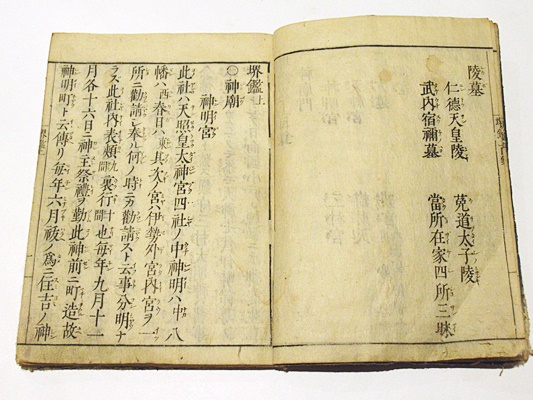 陵墓
仁德天皇陵　菟道太子陵
武内宿禰墓　當所在家四所三昧
堺鑑上
〇神廟
神明宮
此社ハ天照皇太神宮四社ノ中神明ハ中八
幡ハ西春日ハ東其次ノ宮伊勢外宮内宮ヲ一
所ニ勸請シ奉ル何ノ時ニカ勸請スト云事分明ナ
ラス此社内表類九間裏行十間也每年九月十一
月各十六日ニ神主祭禮ヲ勤此神前ニ町造故
神明町ト云傳リ每年六月祓ノ爲ニ住吉ノ神